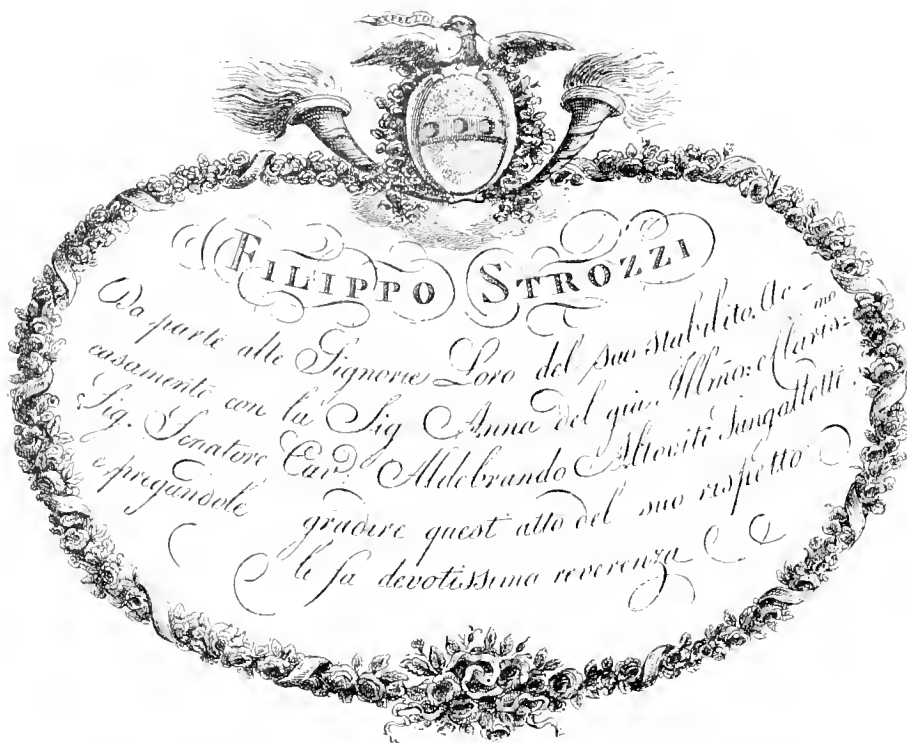 EXPECTO
FILIPPO STROZZI
Da parte alle Signorie Loro del suo stabilito Ac-
casamento con la Sig Anna del già Illmo: e Clariss:mo
Sig. Senatore Cav. Aldebrando Altoviti Sangalletti,
e pregandole gradire quest' atto del suo rispetto
li fa devotissima reverenza